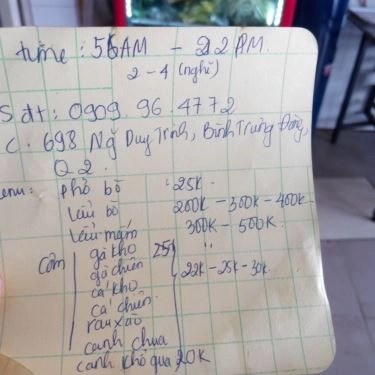 time : 5h AM - 22 PM.
2 - 4 (nghỉ)
Sdt : 0909. 96. 4772
C : 698 Ng Duy Trinh, Bình Trưng Đông,
Q2.
enu : Phở bò : 25k
Lẩu bò 200k - 300k - 400k
Lẩu mắm 300k - 500k
Cơm gà kho 25k "
gà chiên 22k - 25k - 30k
cá kho
cá chiên
rau xào
canh chua
canh khổ qua 20k